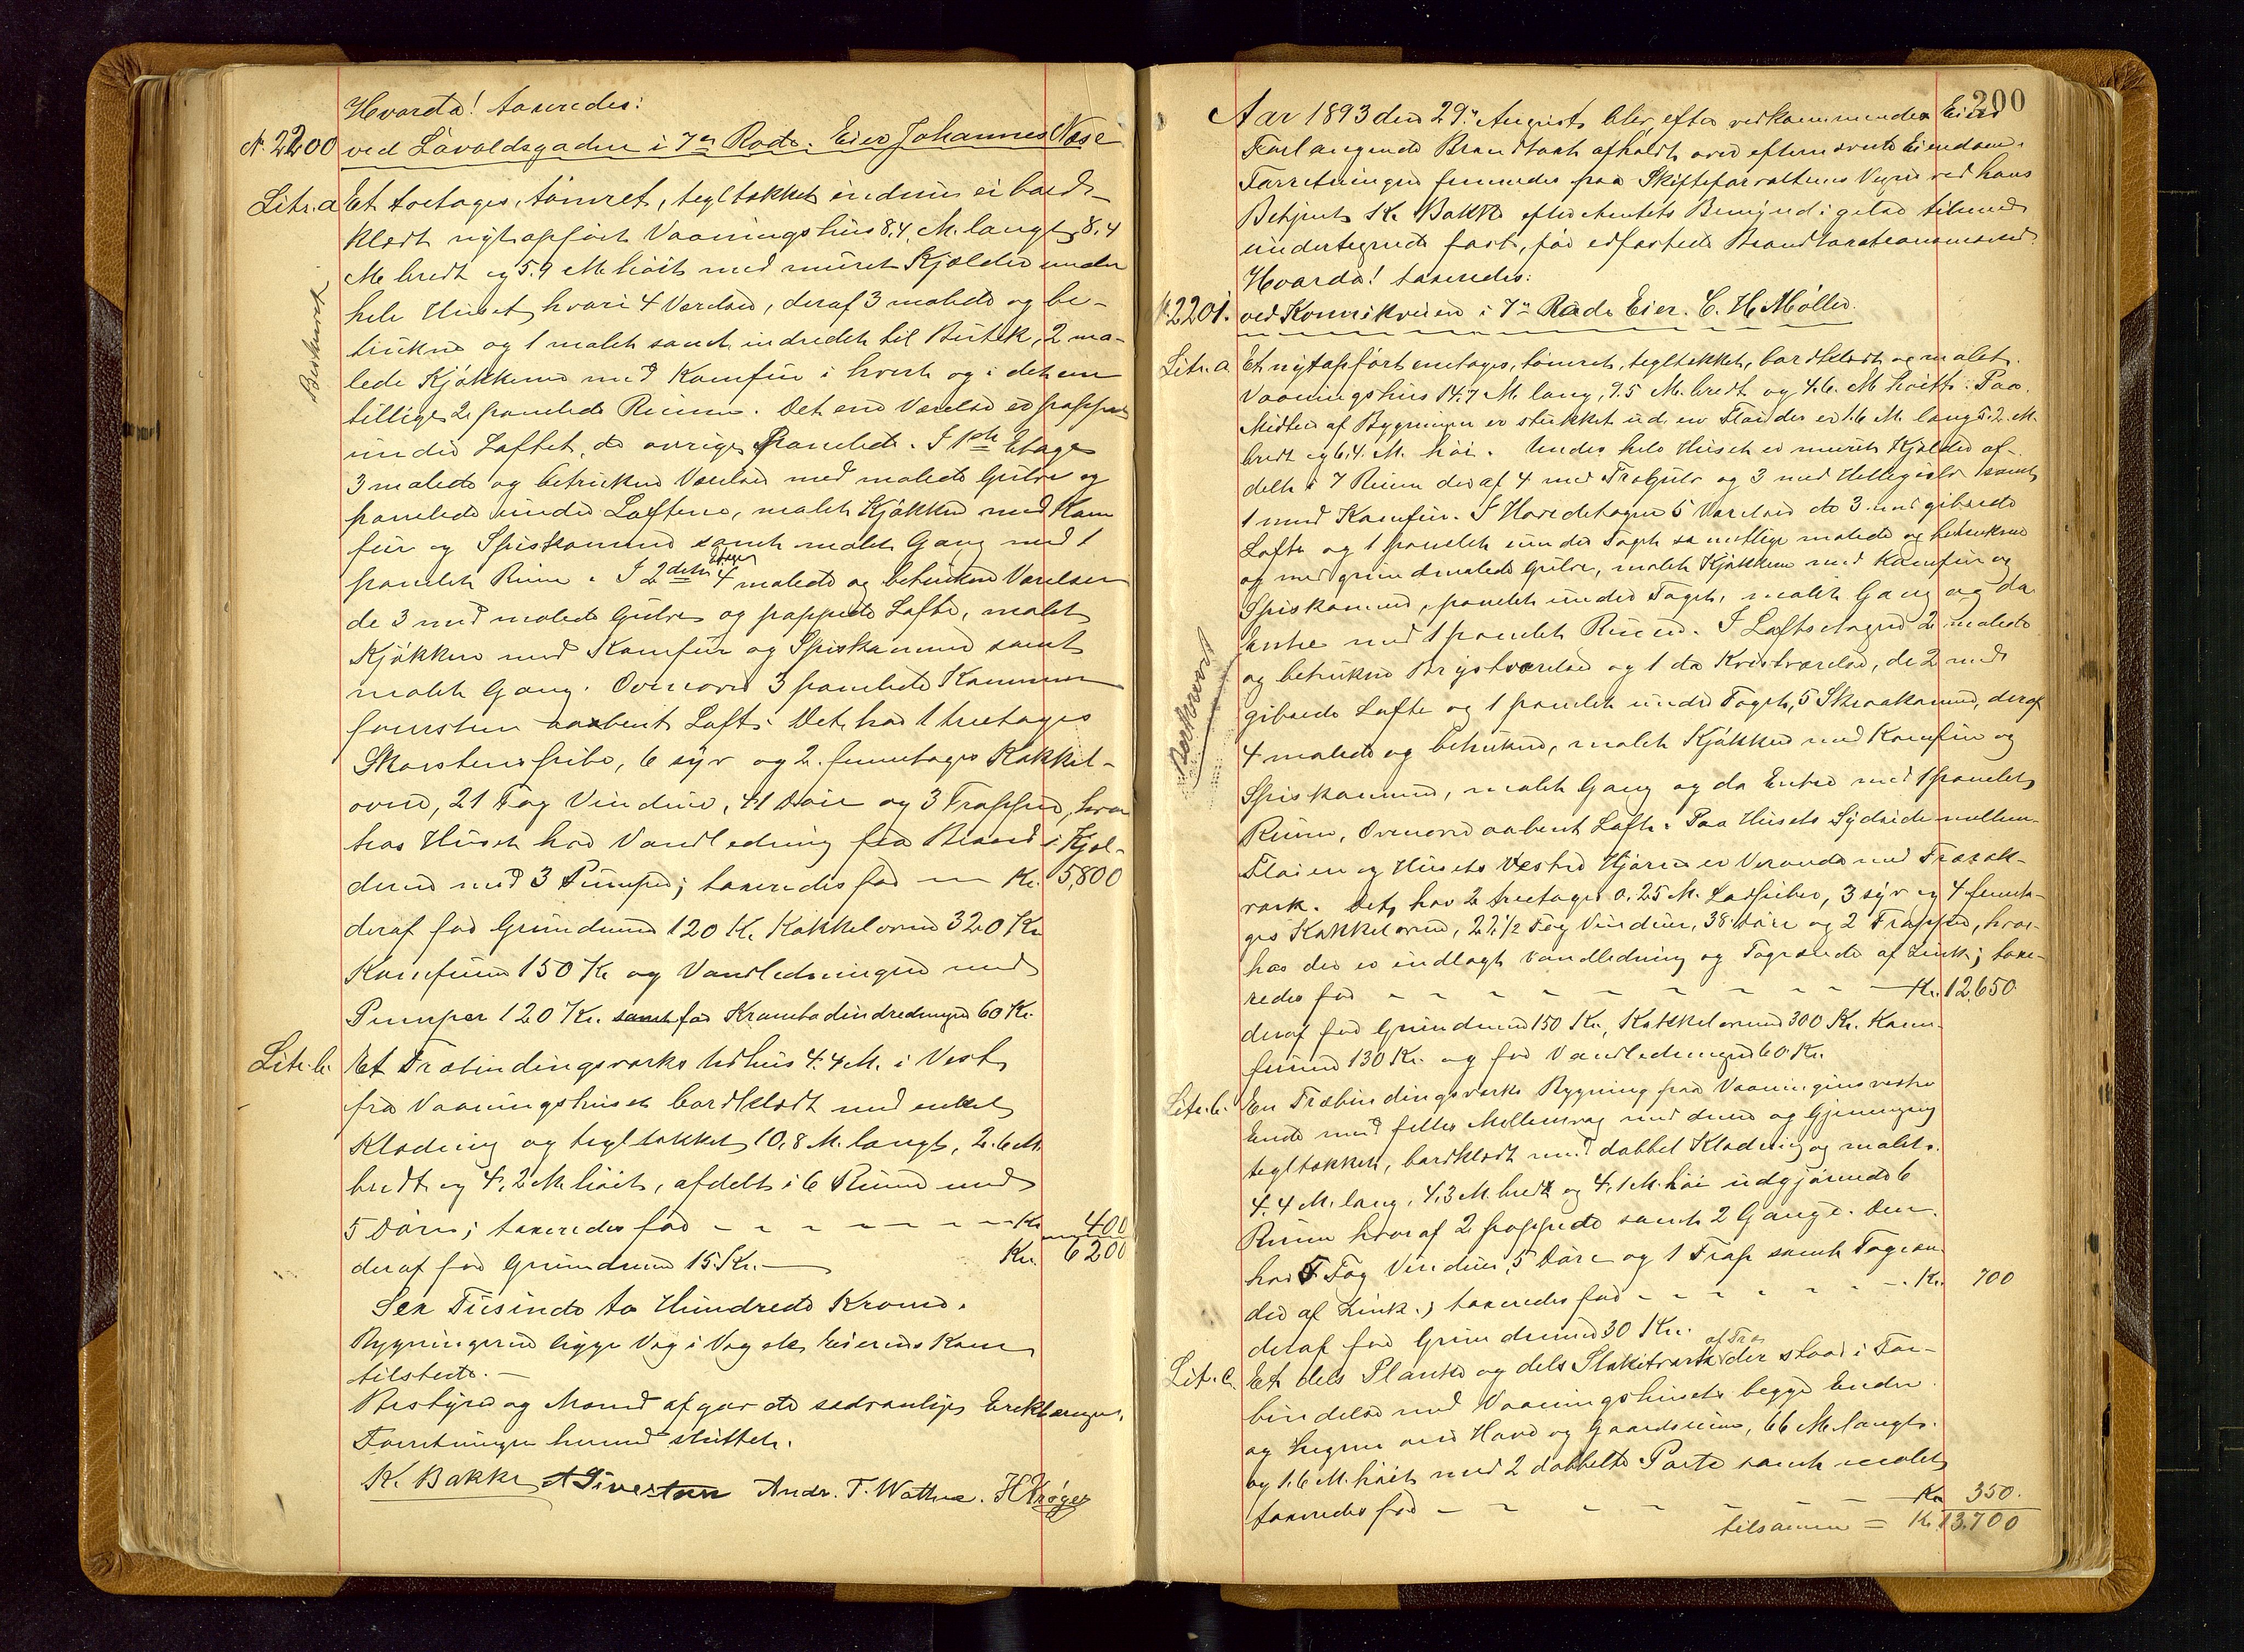 Hvorda! taxeredes:
No. 2200 ved Løvoldsgaden i 7de Rode. Eier Johannes Næse
Litr. a Et toetages, tømret, tegltækket endnu ei bord-
klædt nyt opført Vaaningshus 8,4 M. langt, 8,4
M. bredt og 5,9 M. høit med muret Kjælder under
hele Huset hvori 4 Værelser, deraf 3 malede og be-
trukne og 1 malet samt indredet til Butik, 2 ma-
lede Kjøkkener med Komfur i hvert og i det ene
tillige 2 panelede Rum. Det ene Værelse er pappet
under Loftet, de øvrige panelede. I 1ste Etage
3 malede og betrukne Værelser med malede Gulve og
panelede under Loftene, malet Kjøkken med Kom
fur og Spiskammer samt malet Gang med 1
panelet Rum. I 2den Etage 4 malede og betrukne Værelser
de 3 med malede Gulve og pappede Lofte, malet
Kjøkken med Komfur og Spiskammer samt
malet Gang. Ovenover 3 panelede Kammer
forresten aabent Loft. Det har 1 treetages
Skorstenspibe, 6 syv og 2 femetages Kakkel-
ovne, 21 Fag Vinduer, 41 Døre og 3 Trapper, hvor
hos Huset har Vandledning fra Brønd i Kjæl-
deren med 3 Pumper; taxeredes for — Kr. 5,800
deraf for Grunduren 120 Kr. Kakkelovne 320 Kr
Komfurne 150 Kr og Vandledningen med
Pumper 120 Kr. samt for Krambodindredningen 60 Kr.
Litr. b. Et Træbindingsværks Udhus 4,4 M. i Vest
fra Vaaningshuset bordklædt med enkel
Klædning og tegltækket 10,8 M. langt, 2,6 M.
bredt og 4,2 M. høit, afdelt i 6 Rum med
5 Døre; taxeredes for — Kr 400
deraf for Grunduren 15 Kr. — Kr. 6200
Sex Tusinde to Hundrede Kroner.
Bygningerne ligge Væg i Væg
tilstede. —
Bestyrer og Mænd afgav de sædvanlige Erklæringer.
Forretningen hermed sluttet.
K. Bakke A Sivertsen Andr. T. Wathne. H Krøger
Beskrevet
200
Aar 1893 den 29de August blev efter vedkommende Eiers
Forlangende Brandtaxt afholdt over efternævnte Eiendom.
Forretningen fremmedes paa Skifteforvalterens Vegne ved hans
Betjent K. Bakke efter Amtets Bemyndigelse tilligemed
undertegnede fast, før edfæstede Brandtaxationsmænd.
Hvorda! taxeredes:
No. 2201. ved Kannikveien i 7de Rode Eier. C. H. Møller.
Litr. a. Et nyt opført enetages, tømret, tegltækket, bordklædt og malet.
Vaaningshus 14,7 M. lang, 9,5 M. bredt og 4,6. M høit. Paa
Midten af Bygningen er stukket ud en Fløi der er 1,6 M. lang 5,2 M.
bredt og 6,4. M. høi. Under hele Huset er muret Kjælder af-
delt i 7 Rum deraf 4 med Trægulv og 3 med Hellegulv samt
1 med Komfur. I Hovedetagen 5 Værelser de 3 med gibsede
Lofte og 1 panelet under Taget samtlige malede og betrukne
og med grundmalede Gulve, malet Kjøkken med Komfur og
Spiskammer, panelet under Taget, malet Gang og do
Entre med 1 panelet Rum. I Loftsetagen 2 malede
og betrukne Brystværelser og 1 do Kvistværelse, de 2 med
gibsede Lofte og 1 panelet under Taget, 5 Skraakammer, deraf
4 malede og betrukne, malet Kjøkken med Komfur og
Spiskammer, malet Gang og do Entre med 1 panelet
Rum, Ovenover aabent Loft. Paa Husets Sydside mellem
Fløien og Husets Vestre Hjørne er Veranda med Træræk-
værk. Det har 2 treetages 0,25 M. Lødpiber, 3 syv og 4 femeta-
ges Kakkelovne, 22½ Fag Vinduer, 38 Døre og 2 Trapper, hvor-
hos der er indlagt Vandledning og Tagrende af Zink; taxe-
redes for — Kr. 12,650
deraf for Grunduren 150 Kr., Kakkelovne 300 Kr. Kom-
furene 130 Kr. og for Vandledningen 60 Kr.
Litr. b. En Træbindingsværks Bygning paa Vaaningens vestre
Ende med fælles Mellemvæg med denne og Gjennemgang
tegltækket, bordklædt med dobbel Klædning og malet.
4,4 M. lang, 4,3 M. bredt og 4,1 M. høi udgjørende 6
Rum hvoraf 2 pappede samt 2 Gange. Den
har 5 Fag Vinduer, 5 Døre og 1 Trap samt Tagren-
der af Zink.; taxeredes for — Kr. 700
deraf for Grunduren 30 Kr.
Litr. c. Et dels Planke og dels Stakitværk af Træ der staar i For-
bindelse med Vaaningshusets begge Ender
og hegner over Have og Gaardsrum, 66 M. langt.
og 1,6 M. høit med 2 dobbelte Porte samt malet
taxeredes for — Kr 350.
tilsammen = Kr. 13,700
Beskrevet